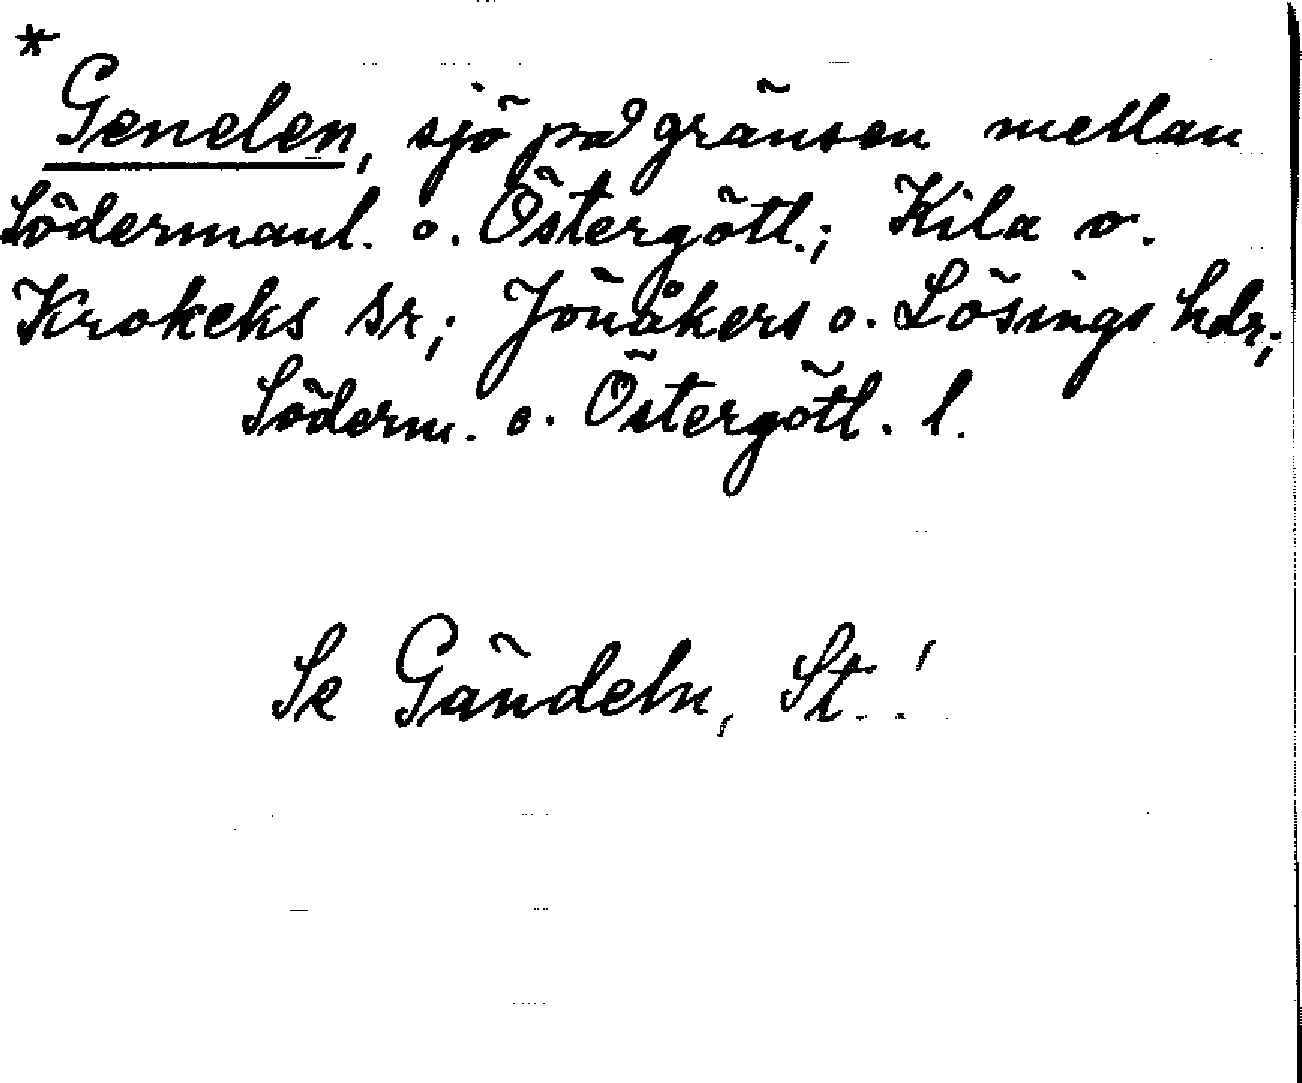 *
Genelen, sjö på gränsen mellan
Södermanl. o. Östergötl.; Kila o.
Krokeks sr; Jönåkers o. Lösings hdr;
Söderm. o. Östergötl. l.
Se Gändeln, St.!